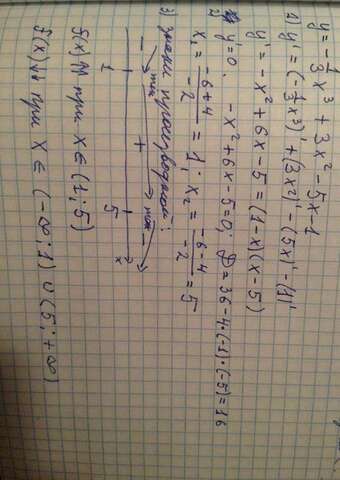 y = -1/3 x³ + 3x² - 5x - 1
1) y' = (-1/3 x³)' + (3x²)' - (5x)' - (1)'
y' = -x² + 6x - 5 = (1-x)(x-5)
2) y' = 0. -x² + 6x - 5 = 0; D = 36 - 4·(-1)·(-5) = 16
x₁ = (-6+4)/-2 = 1; x₂ = (-6-4)/-2 = 5
3) знаки производной:
min max
- + -
1 5 x
f(x)↑↑ при x ∈ (1; 5)
f(x)↓↓ при x ∈ (-∞; 1) ∪ (5; +∞)